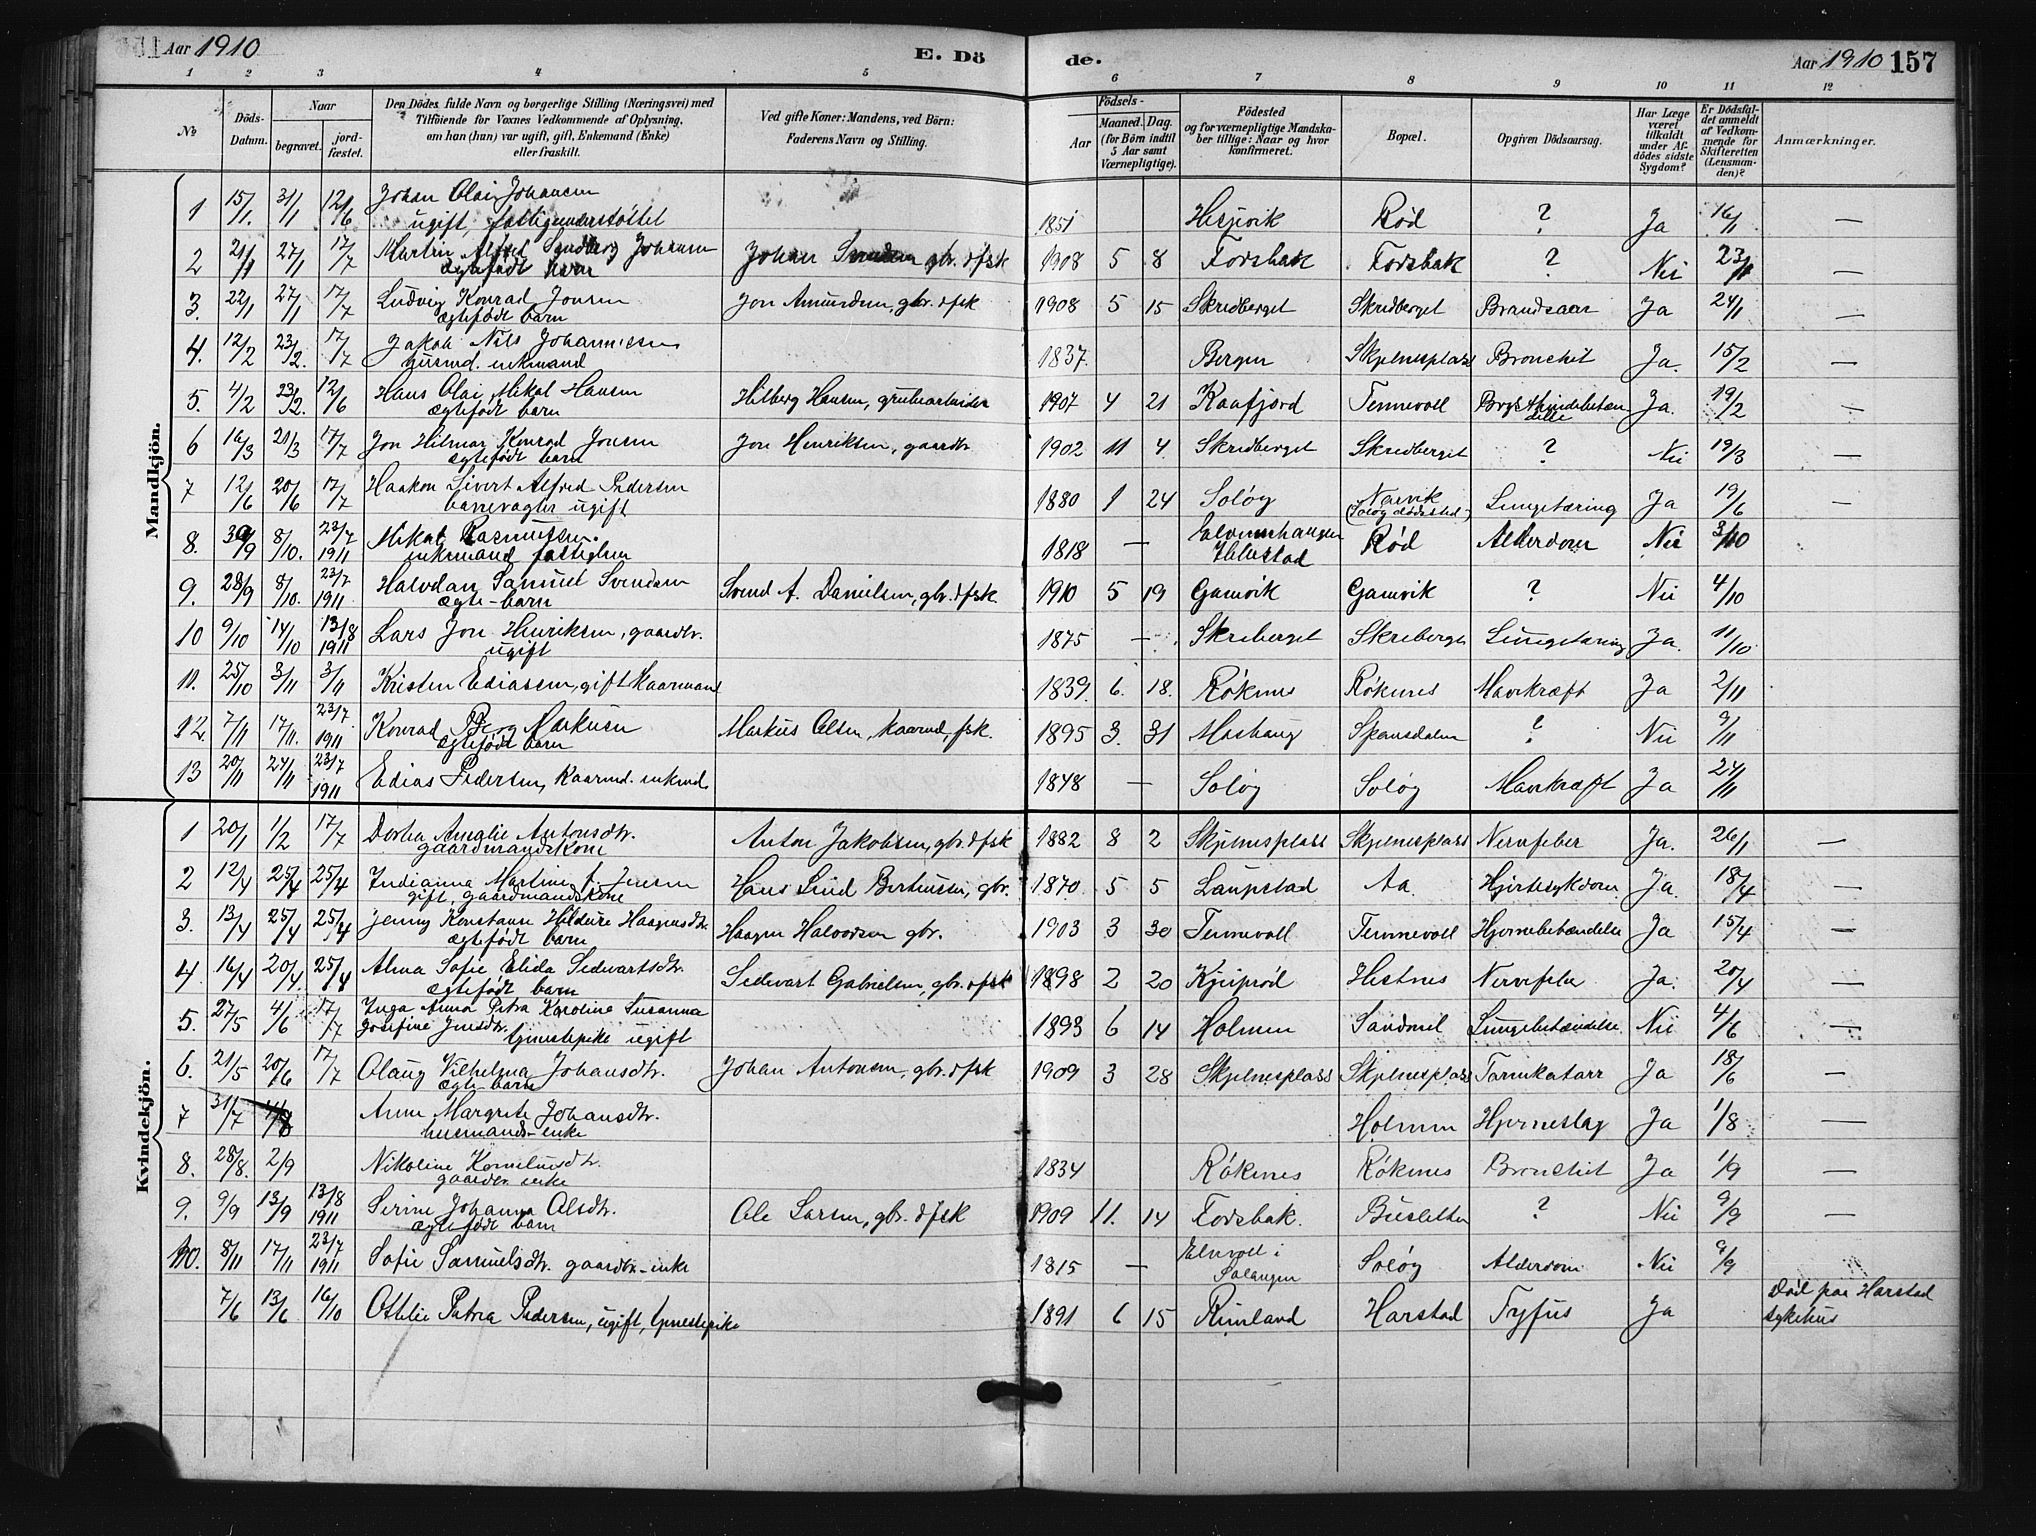 Aar 1910
E. Dö
de.
Aar 1910 157
1 2 3 4 5 6 7 8 9 10 11 12
No
Döds-Datum.
Naar
begravet.
jord-fæstet.
Den Dödes fulde Navn og borgerlige Stilling (Næringsvei) med
Tilföiende for Voxnes Vedkommende af Oplysning,
om han (hun) var ugift, gift, Enkemand (Enke)
eller fraskilt.
Ved gifte Koner: Mandens, ved Börn:
Faderens Navn og Stilling.
Födsels-
Aar
Maaned. Dag.
(for Börn indtil
5 Aar samt
Værnepligtige).
Födested
og for værnepligtige Mandska-
ber tillige: Naar og hvor
konfirmeret.
Bopæl.
Opgiven Dödsaarsag.
Har Læge
været
tilkaldt
under Af-
dödes sidste
Sygdom?
Er Dödsfal-
det anmeldt
af Vedkom-
mende for
Skifteretten
(Lensman-
den)?
Anmærkninger.
Mandkjön.
1 15/1. 31/1 12/6 Johan Olai Johansen 1851 Hesjevik Rød ? Ja 16/1 —
ugift, fattigunderstøttet
2 21/1 27/1 17/7 Martin Alfred Sandberg Johansen Johan Svendsen gbr. & fsk 1908 5 8 Forsbak Forsbak ? Nei 23/1 —
ægtefødt barn
3. 22/1 27/1 17/7 Ludvig Konrad Jonsen Jon Amundsen, gbr. & fsk 1908 5 15 Skredberget Skredberget Brandsaar Ja 24/1 —
ægtefødt barn
4. 12/2 23/2. 17/7 Jakob Nils Johannesen 1837. Bergen Skjelnesplass Bronchit Ja. 15/2 —
husmd. enkemand
5. 4/2 23/2. 12/6 Hans Olai Mikal Hansen Hilberg Hansen, grubearbeider 1907 4 21 Kaafjord Tennevoll Brysthindebetændelse Ja. 19/2 —
ægtefødt barn
6 16/3 21/3 17/7 Jon Hilmar Konrad Jonsen Jon Henriksen, gaardbr 1902 11 4. Skredberget Skredberget ? Nei 19/3 —
ægtefødt barn
7 12/6 20/6 17/7 Haakon Sivert Alfred Pedersen 1880 1 24 Soløy Narvik Lungetæring Ja 19/6 —
banevogter ugift (Soløy dødssted)
8. 30/9 8/10. 23/7 1911 Mikal Rasmussen. 1818 — Rød Alderdom Nei 3/10
enkemand fattiglem
9. 28/9 8/10. 23/7 1911 Halvdan Samuel Svendsen Svend A. Danielsen, gbr. & fsk. 1910 5 19 Gamvik Gamvik ? Nei 4/10
ægte-barn
10 9/10 14/10 13/8 1911 Lars Jon Henriksen, gaardbr. 1875 — Skreberget Skreberget Lungetæring Ja. 11/10
ugift
11. 25/10 3/11 3/11 Kristen Ediassen, gift kaarmand 1839. 6. 18. Røkenes Røkenes Mavekræft Ja 2/11
12. 7/11 17/11. 23/7. 1911 Konrad Berg Markusen Markus Olsen, kaarmd, fsk. 1895 3. 31 Moshaug Spansdalen ? Nei 9/11
ægtefødt barn
13 20/11 24/11 23/7 1911 Edias Pedersen, kaarmd. enkmd. 1848 — Soløy Soløy Mavekræft Ja 24/11
Kvindekjön.
1 20/1 1/2 17/7 Dorthea Amalie Antonsdtr. Anton Jakobsen, gbr. & fsk 1882 8 2 Skjelnesplass Skjelnesplass Nervefeber Ja. 26/1 —
gaardmandskone
2 12/4 25/4 25/4 Indianna Martine f. Jensen Hans Lind Berteussen, gbr. 1870. 5 5 Laupstad Aa. Hjertesykdom Ja. 18/4 —
gift, gaardmandskone
3. 13/4 25/4 25/4 Jenny Konstanse Hildeise Haagensdtr. Haagen Halvorsen gbr. 1903 3 30 Tennevoll Tennevoll Hjernebetændelse Ja 15/4 —
ægtefødt barn
4. 16/4 20/4. 25/4 Alma Sofie Elida Sedevartsdtr. Sedevart Gabrielsen, gbr. & fsk 1898 2 20 Hestnes Nervefeber Ja. 20/4 —
ægtefødt barn
5. 27/5 4/6 17/7 Inga Anna Petra Karoline Susanna 1893 6 14 Holmen Sandmel Lungebetændelse Nei 4/6 —
Josefine Jensdtr. tjenestepike ugift
6. 21/5 20/6 17/7 Olaug Vilhelma Johansdtr. Johan Antonsen, gbr. & fsk 1909 3 28 Skjelnesplass Skjelnesplass Tarmkatarr Ja 18/6 —
ægte-barn
7 31/7 4/8 Anne Margrete Johansdtr. Holmen Hjerneslag Ja 1/8 —
husmands-enke
8. 28/8. 2/9 Nikoline Korneliusdtr. 1834 Røkenes Røkenes Bronchit Ja 1/9 —
gaardbr. enke
9. 9/9 13/9 13/8 1911 Serine Johanna Olsdtr. Ole Larsen, gbr. & fsk 1909 11. 14 Forsbak. Busletten ? Nei 9/9 —
ægtefødt barn
10. 8/11 17/11 23/7 1911 Sofie Samuelsdtr. gaardbr-enke 1815 — Elvevoll i Salangen Soløy Alderdom Nei 9/9
7/6 13/6 16/10 Ottilie Petrea Pedersen, ugift, tjenestepike 1891 6 15 Rumland Harstad Tyfus Ja Død paa Harstad
sykehus